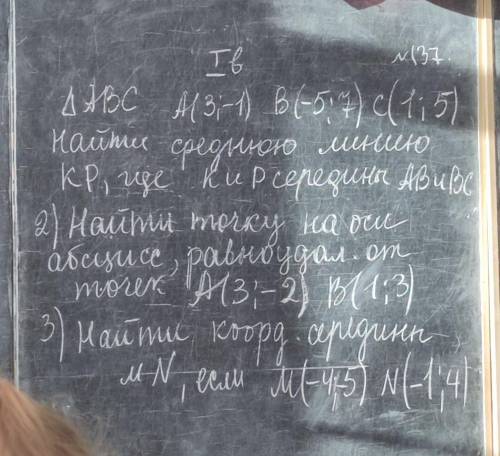 I в
№137.
△ABC A(3;-1) B(-5;7) C(1;5)
Найти среднюю линию
KP, где K и P середины AB и BC
2) Найти точку на оси
абсцисс, равноудал. от
точек A(3;-2) B(1;3)
3) Найти коорд. середины
MN, если M(-4;-5) N(-1;4)